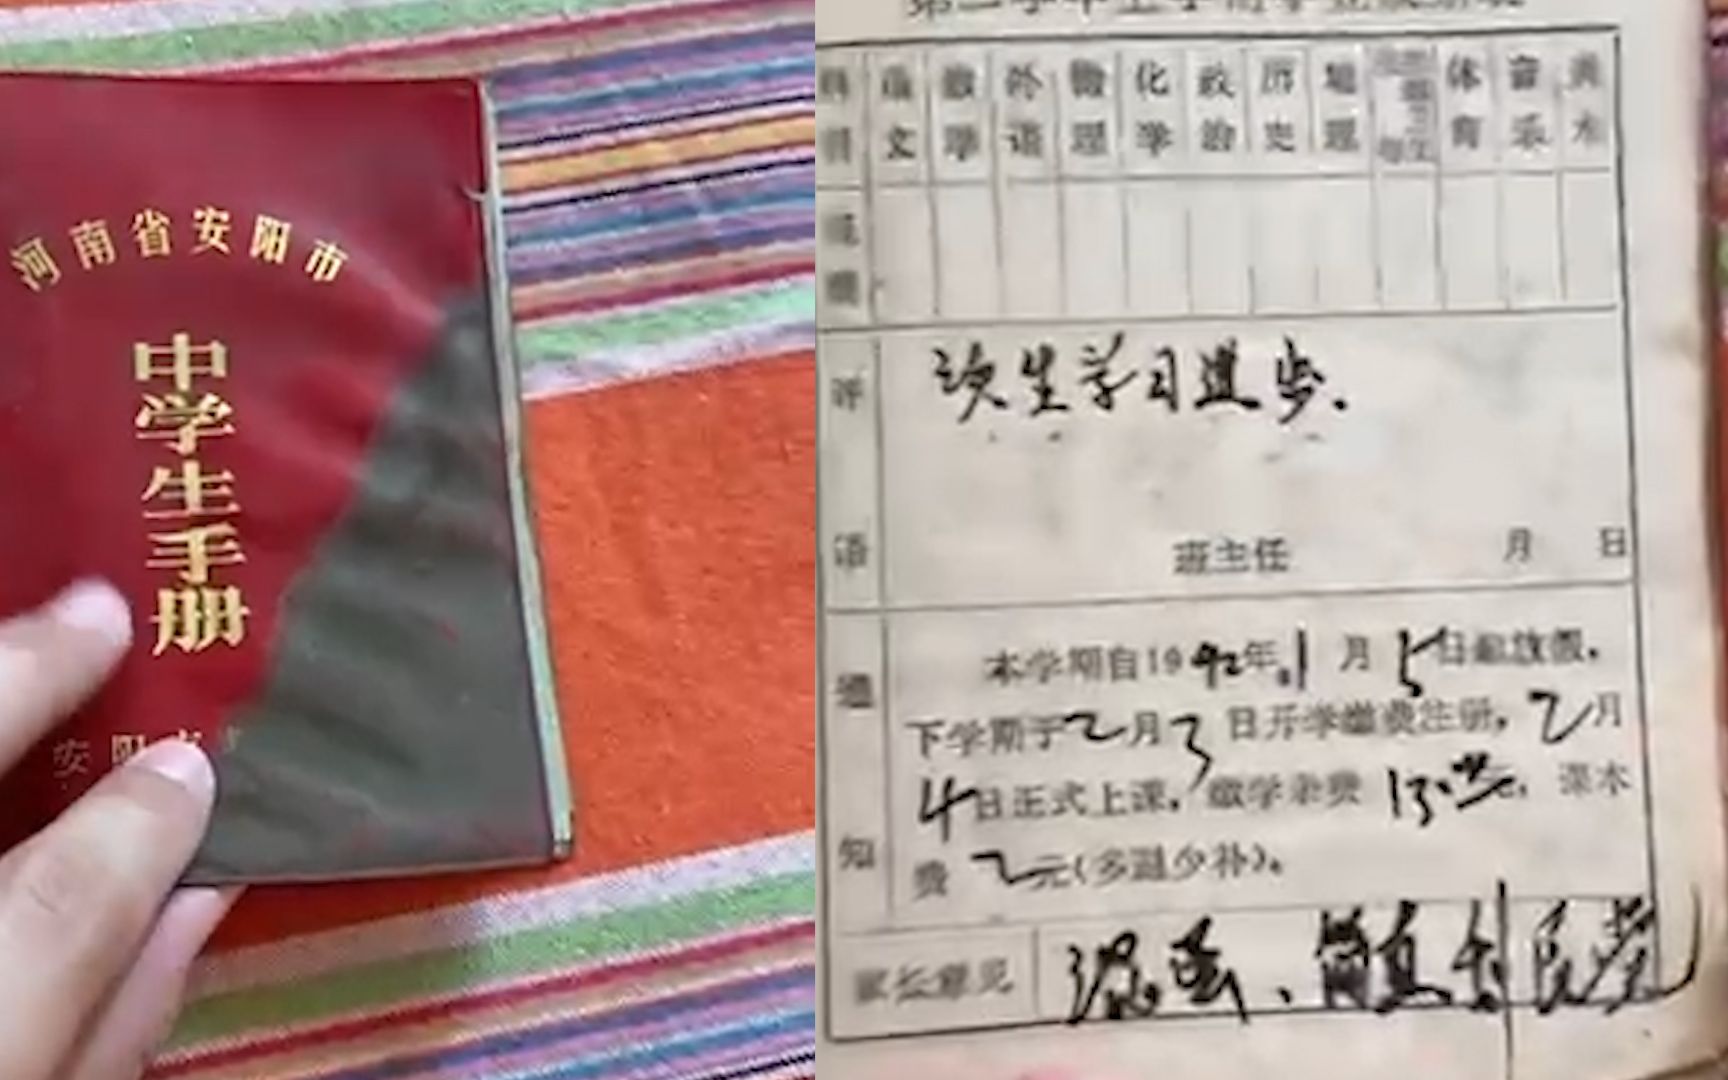 河南省安阳市
中学生手册
安阳市
科目 语文 数学 外语 物理 化学 政治 历史 地理 体育 音乐 美术
成绩
评语
该生学习进步.
班主任 月 日
通知
本学期自1992年1月5日起放假,
下学期于2月3日开学缴费注册,2月
4日正式上课,缴学杂费13元,课本
费2元(多退少补)。
家长意见